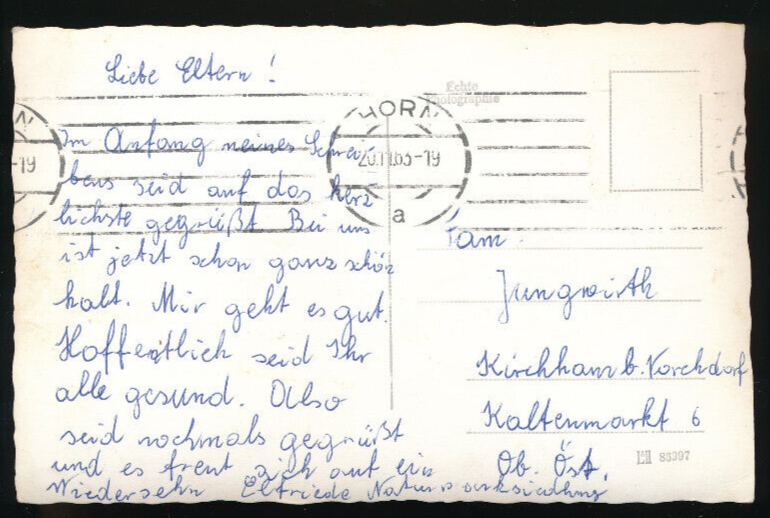 Liebe Eltern!
Im Anfang meines Schrei-
bens seid auf das herz
lichste gegrüßt Bei uns
ist jetzt schon ganz schön
kalt. Mir geht es gut.
Hoffentlich seid Ihr
alle gesund. Also
seid nochmals gegrüßt
und es freut sich auf ein
Wiedersehn Elfriede
Echte
Photographie
HORN
20.11.63-19
a
N
-19
Fam.
Jungwirth
Kirchham b. Vorchdorf
Kaltenmarkt 6
Ob. Öst.
83397